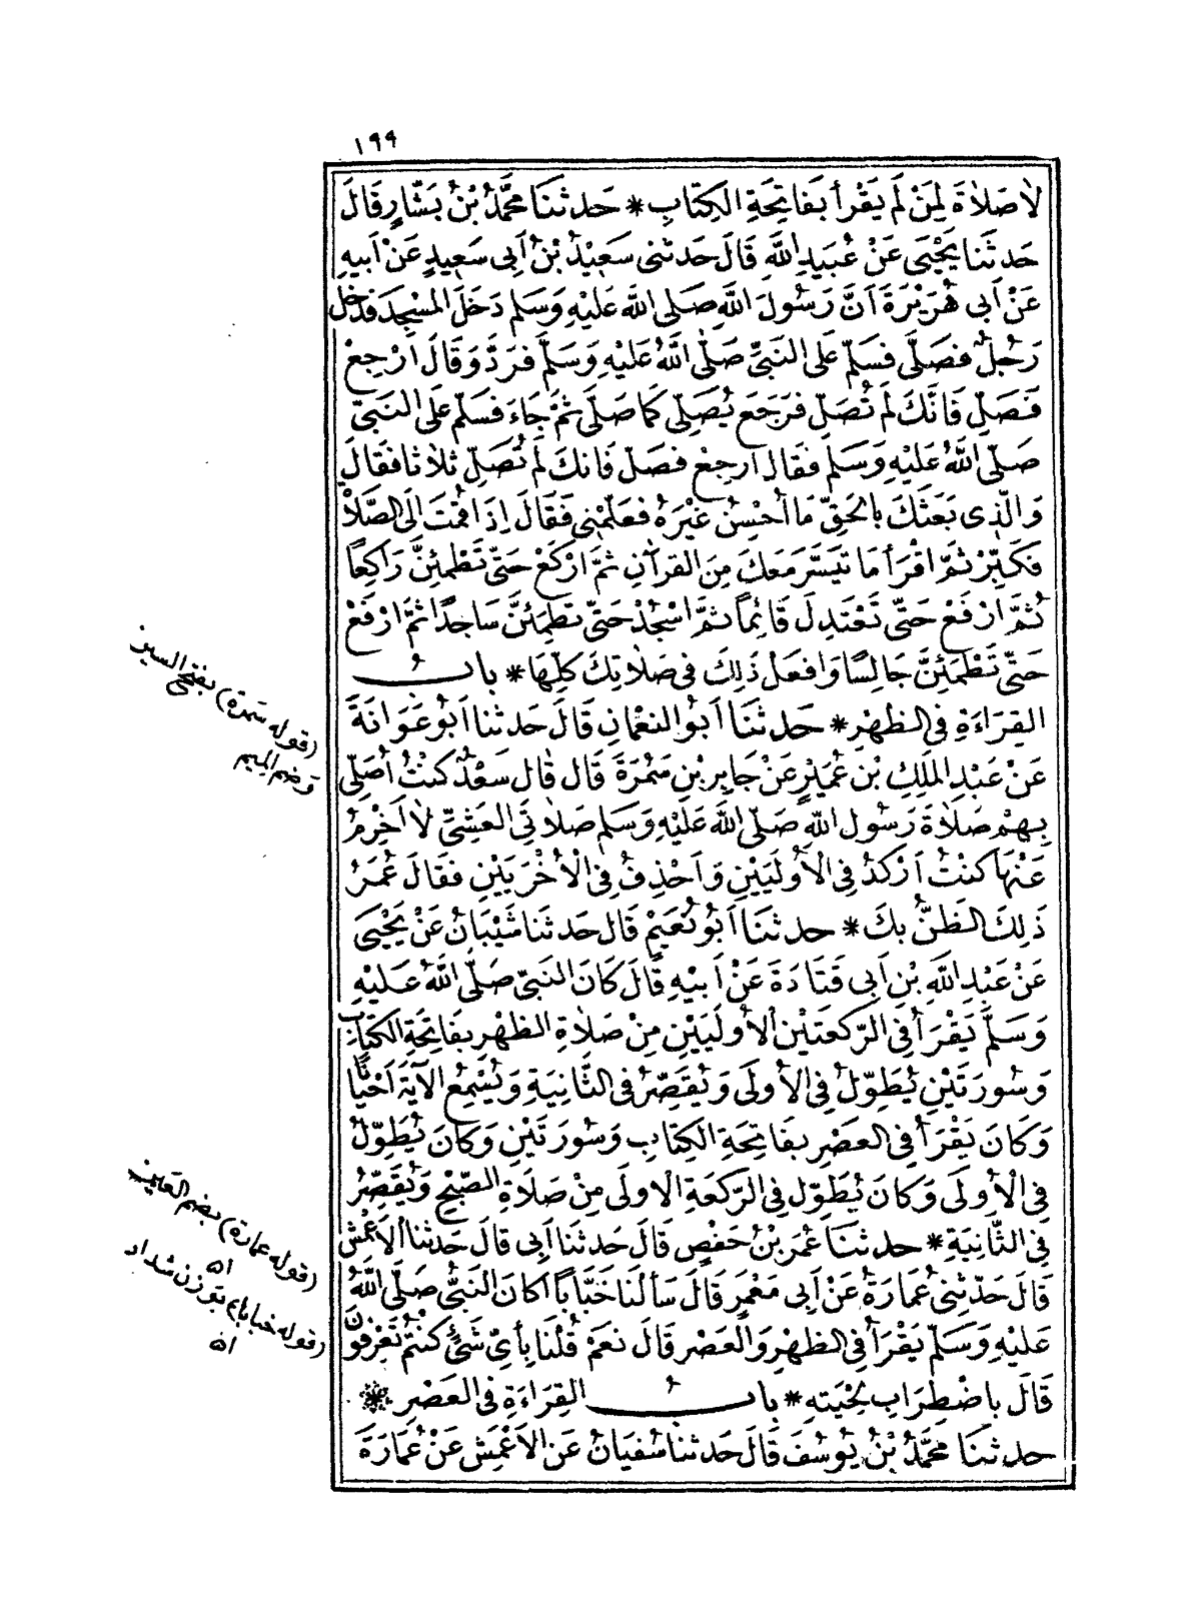 ١٩٩
لَا صَلَاةَ لِمَنْ لَمْ يَقْرَأْ بِفَاتِحَةِ الكِتَابِ * حَدثَنَا مُحَمَّدُ بْنُ بَشَّارٍ قَالَ
حَدثَنا يَحْيَى عَنْ عُبَيدِ اللَّهِ قَالَ حَدثنى سَعِيْدُ بْنُ اَبِى سَعِيدٍ عَنْ اَبيهِ
عَنْ اَبِى هُرَيْرَةَ اَنَّ رَسُولَ اللَّهِ صَلى اللَّه عَلَيْهِ وَسَلم دَخَلَ المَسْجِدَ فدخل
رَجُلٌ فصَلَّى فسَلّم عَلى النَبيِّ صَلّى اللَّهُ عَلَيْهِ وَسَلَّم فرَدَّ وَقَالَ ارْجِعْ
فَصَلِّ فَانَّكَ لَمْ تُصَلِّ فرَجَعَ يُصَلِّى كَمَا صَلَّى ثمَّ جَاءَ فسَلم عَلى النَبىّ
صَلّى اللَّهُ عَلَيْهِ وَسَلَم فقَال ارجِعْ فصَلّ فَانكَ لَمْ تُصَلِّ ثلاثا فقَالَ
وَالَّذِى بَعَثَكَ بالحَقِّ مَا اُحْسِنُ غيْرَهُ فعَلمْنى فَقَالَ اِذَا قُمْتَ اِلَى الصَّلاةِ
فَكَبِّرْ ثمَّ اقْرَأ مَا تيَسَّرَ مَعَكَ مِنَ القرآنِ ثمَّ ارْكَعْ حَتّى تَطْمئِنَّ رَاكِعاً
ثُمَّ ارْفَعْ حَتّى تَعْتَدِلَ قَائِماً ثمَّ اسْجُدْ حَتّى تطمَئنَّ سَاجداً ثمَّ ارْفَعْ
حَتّى تَطْمَئِنَّ جَالِسًا وَافعَلْ ذَلِكَ فى صَلَاتِكَ كلّهَا * بابُ
القِرَاءَةِ فى الظهْرِ * حَدثَنَا اَبُو النعْمَانِ قَالَ حَدثنا اَبُو عَوَانَةَ
عَنْ عَبْدِ المَلِكِ بْنِ عُمَيْرٍ عَنْ جَابِرِ بْنِ سَمُرَةَ قَال قال سَعْدٌ كنْتُ اُصَلّى
بِهِمْ صَلَاةَ رَسُولِ اللَّهِ صَلّى اللَّه عَلَيْهِ وَسَلم صَلَاتَى العَشِىِّ لَا اَخْرِمُ
عَنْهَا كنْتُ اَرْكُدُ فِى الْاُولَيَيْنِ وَاَحْذِفُ فِى الْاُخْرَيَيْنِ فقَالَ عُمَرُ
ذَلِكَ الظَنُّ بكَ * حدثنَا اَبُو نُعَيْمٍ قال حَدثَنا شَيْبَانُ عَنْ يَحْيَى
عَنْ عَبْدِ اللَّهِ بْنِ اَبِى قَتَادَةَ عَنْ اَبيْهِ قَالَ كَانَ النبىّ صَلَّى اللَّهُ عَلَيْهِ
وَسَلَّم يَقْرَأ فِى الرّكعَتيْنِ الاُولَيَيْنِ مِنْ صَلَاةِ الظهْرِ بفَاتِحَةِ الكتَابِ
وَسُورَتَيْنِ يُطَوِّلُ فِى الاُولَى وَيُقَصِّرُ فى الثَّانِيَةِ وَيُسْمِعُ الآيَةَ اَحْيَاناً
وَكَانَ يَقْرَأ فِى العَصْرِ بفَاتِحَةِ الكِتَابِ وَسُورَتَيْنِ وَكَانَ يُطَوِّلُ
فِى الْاُولَى وَكَانَ يُطَوِّل فِى الرّكعَةِ الاولَى مِنْ صَلَاةِ الصّبْحِ وَيُقَصِّرُ
فِى الثَّانِيَةِ * حدثنَا عُمَرُ بْنُ حَفْصٍ قَالَ حَدثنَا اَبِى قَالَ حَدثنا الاَعْمَش
قَالَ حَدّثنى عُمَارَةُ عَنْ اَبِى مَعْمَرٍ قَالَ سَألنَا خَبَّاباً اكَانَ النَبىُّ صَلَّى اللَّهُ
عَلَيْهِ وَسَلّم يَقْرَأ فِى الظهْرِ وَالْعَصْرِ قَالَ نعَمْ قُلْنَا بِأىِّ شَئٍ كنْتُمْ تَعْرِفونَ
قَالَ باضْطِرَابِ لحْيَتهِ * بابُ القِرَاءَةِ فى العَصْرِ *
حدثنَا محمَّدُ بْنُ يُوسُفَ قَالَ حَدثنا سُفيَانُ عَن الاَعْمَش عَنْ عُمَارَةَ
(قوله سَمرَة) بفتح السين
وَضم الميم
(قوله عمارة) بضم العَين
اه
(قوله خبابا) بوَزن شداد
اه